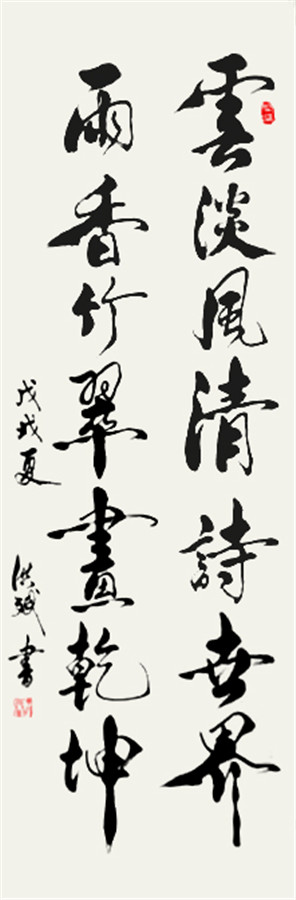 雲淡風清詩世界
雨香竹翠畫乾坤
戊戌夏
洪斌書